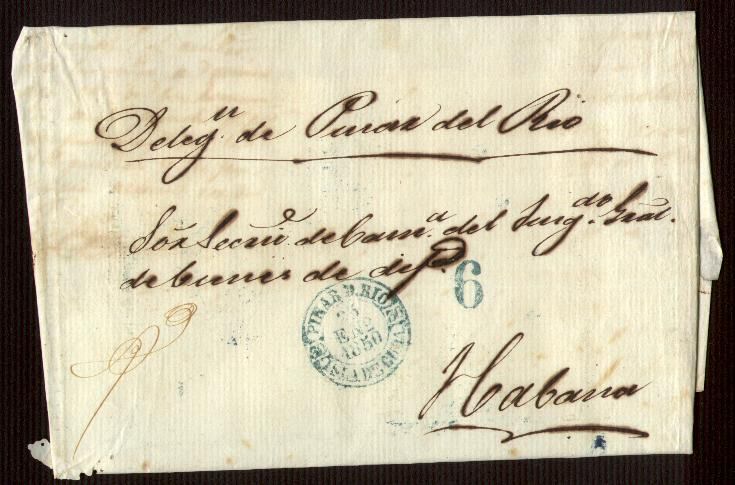 Deleg.n de Pinar del Rio
Sõr Secrio. de Cam.a del Juzg.do Gral.
de bienes de dif.s
6
PINAR D. RIO
ENE
1850
ISLA DE CUBA
Habana